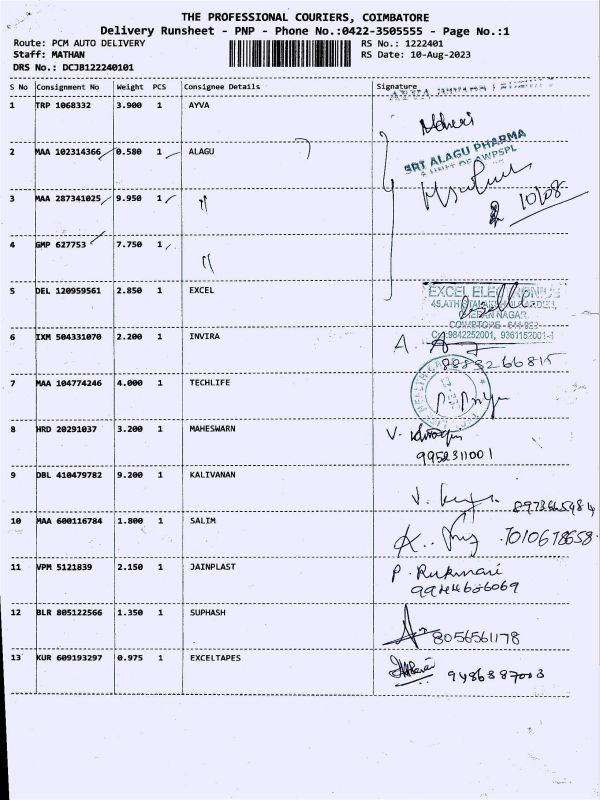 THE PROFESSIONAL COURIERS, COIMBATORE
Delivery Runsheet - PNP - Phone No.:0422-3505555 - Page No.:1
Route: PCM AUTO DELIVERY RS No.: 1222401
Staff: MATHAN RS Date: 10-Aug-2023
DRS No.: DCJB122240101
S No Consignment No Weight PCS Consignee Details Signature
1 TRP 1068332 3.900 1 AYVA
2 MAA 102314366 0.580 1 ALAGU
SRI ALAGU PHARMA
3 MAA 287341025 9.950 1 "
10/08
4 GMP 627753 7.750 1 "
5 DEL 120959561 2.850 1 EXCEL
EXCEL ELECTRONICS
6 IXM 504331070 2.200 1 INVIRA
Cell:9842252001, 9361152001-4
7 MAA 104774246 4.000 1 TECHLIFE
8 HRD 20291037 3.200 1 MAHESWARN
V.
9952311001
9 DBL 410479782 9.200 1 KALIVANAN
V.
10 MAA 600116784 1.800 1 SALIM
K. 7010678658
11 VPM 5121839 2.150 1 JAINPLAST
P. Rukmani
9944626069
12 BLR 805122566 1.350 1 SUPHASH
8056561178
13 KUR 609193297 0.975 1 EXCELTAPES
9486887003